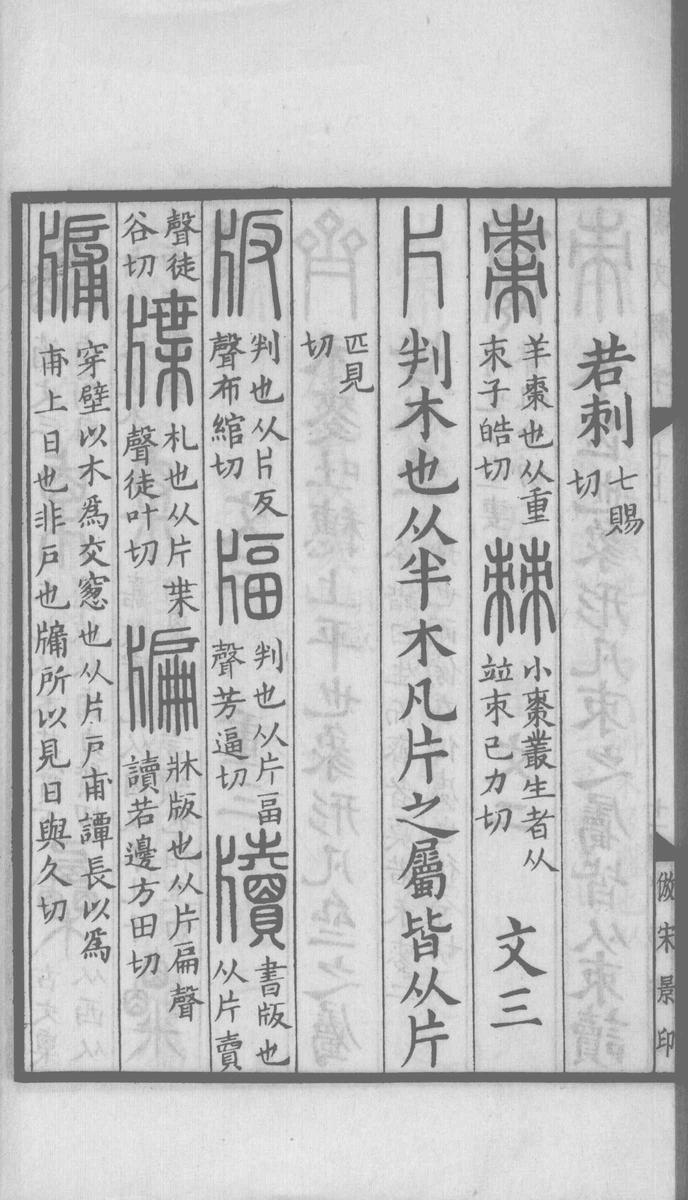 若刺七賜切
棗羊棗也从重朿子皓切棘小棗叢生者从竝朿己力切文三
片判木也从半木凡片之屬皆从片
匹見切
版判也从片反聲布綰切㽬判也从片畐聲芳逼切牘書版也从片賣
聲徒谷切牒札也从片枼聲徒叶切牑牀版也从片扁聲讀若邊方田切
牖穿壁以木爲交窻也从片戶甫譚長以爲甫上日也非戶也牖所以見日與久切
倣宋景印